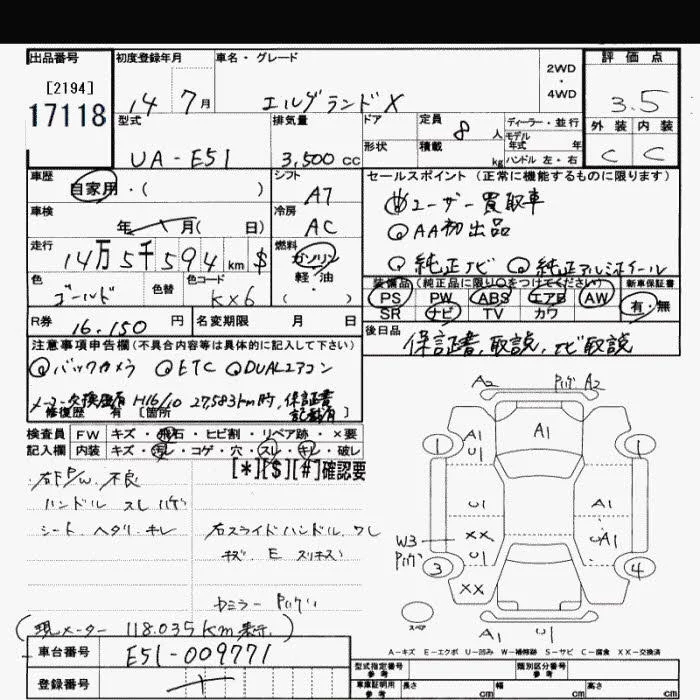 出品番号 初度登録年月 車名・グレード 評価点
[2194] 2WD・4WD
17118 14年 7月 エルグランド X 3.5
型式 排気量 ドア 定員 8人 ディーラー・並行 外装 内装
モデル年式 年
形状 積載 kg ハンドル 左・右
UA-E51 3,500 cc C C
車歴 シフト セールスポイント(正常に機能するものに限ります)
自家用・( ) A7 ユーザー買取車
車検 冷房 AA初出品
年 月( 日) AC
走行 燃料 純正ナビ 純正アルミホイール
14万5千594 km $ ガソリン
軽・油
・( )
色 色替 色コード 装備品(純正品に限り○をつけてください) 新車保証書
ゴールド KX6 PS PW ABS エアB AW 有・無
SR ナビ TV カワ
R券 16,150 円 名変期限 月 日 後日品
保証書、取説、ナビ取説
注意事項申告欄(不具合内容等は具体的に記入して下さい)
バックカメラ ETC DUALエアコン
メーター交換歴有 H16/10 27,583km時、保証書記載有
修復歴 有 [箇所
検査員 FW キズ・飛石・ヒビ割・リペア跡・×要
記入欄 内装 キズ・汚レ・コゲ・穴・スレ・キレ・破レ
[*][$][#]確認要
右F P/W 不良
ハンドル スレ ハゲ
シート ヘタリ・キレ 右スライドハンドル ワレ
キズ、E
(現メーター 118.035km表示)
車台番号 E51-009771
登録番号
A2 A2
1 A1 U1 A1 1
U1 A1
W3 XX U1 A1
3 XX 4
スペア
A1 U1
A-キズ E-エクボ U-凹み W-補修跡 S-サビ C-腐食 XX-交換済
型式指定番号 参考 類別区分番号 参考
車庫証明用 参考 長さ cm 幅 cm 高さ cm